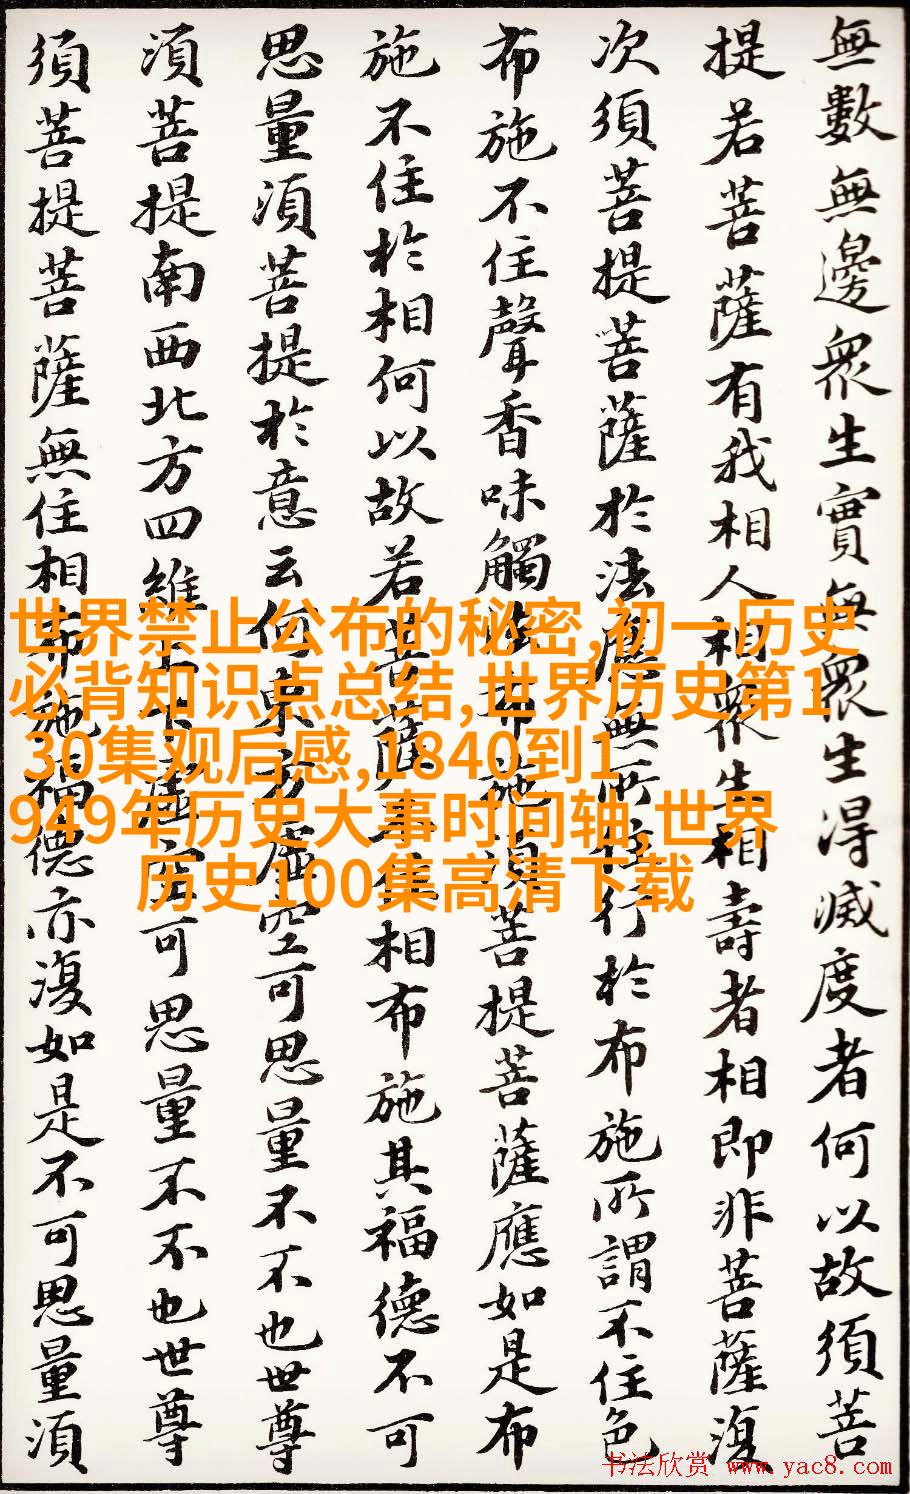 無數無邊眾生實無眾生得滅度者何以故須菩
提若菩薩有我相人相眾生相壽者相即非菩薩復
次須菩提菩薩於法應無所住行於布施所謂不住色
布施不住聲香味觸法布施須菩提菩薩應如是布
施不住於相何以故若菩薩不住相布施其福德不可
思量須菩提於意云何東方虛空可思量不不也世尊
須菩提南西北方四維上下虛空可思量不不也世尊
須菩提菩薩無住相布施福德亦復如是不可思量須
世界禁止公布的秘密,初一历史
必背知识点总结,世界历史第1
30集观后感,1840到1
949年历史大事时间轴,世界
历史100集高清下载
书法欣赏 www.yac8.com